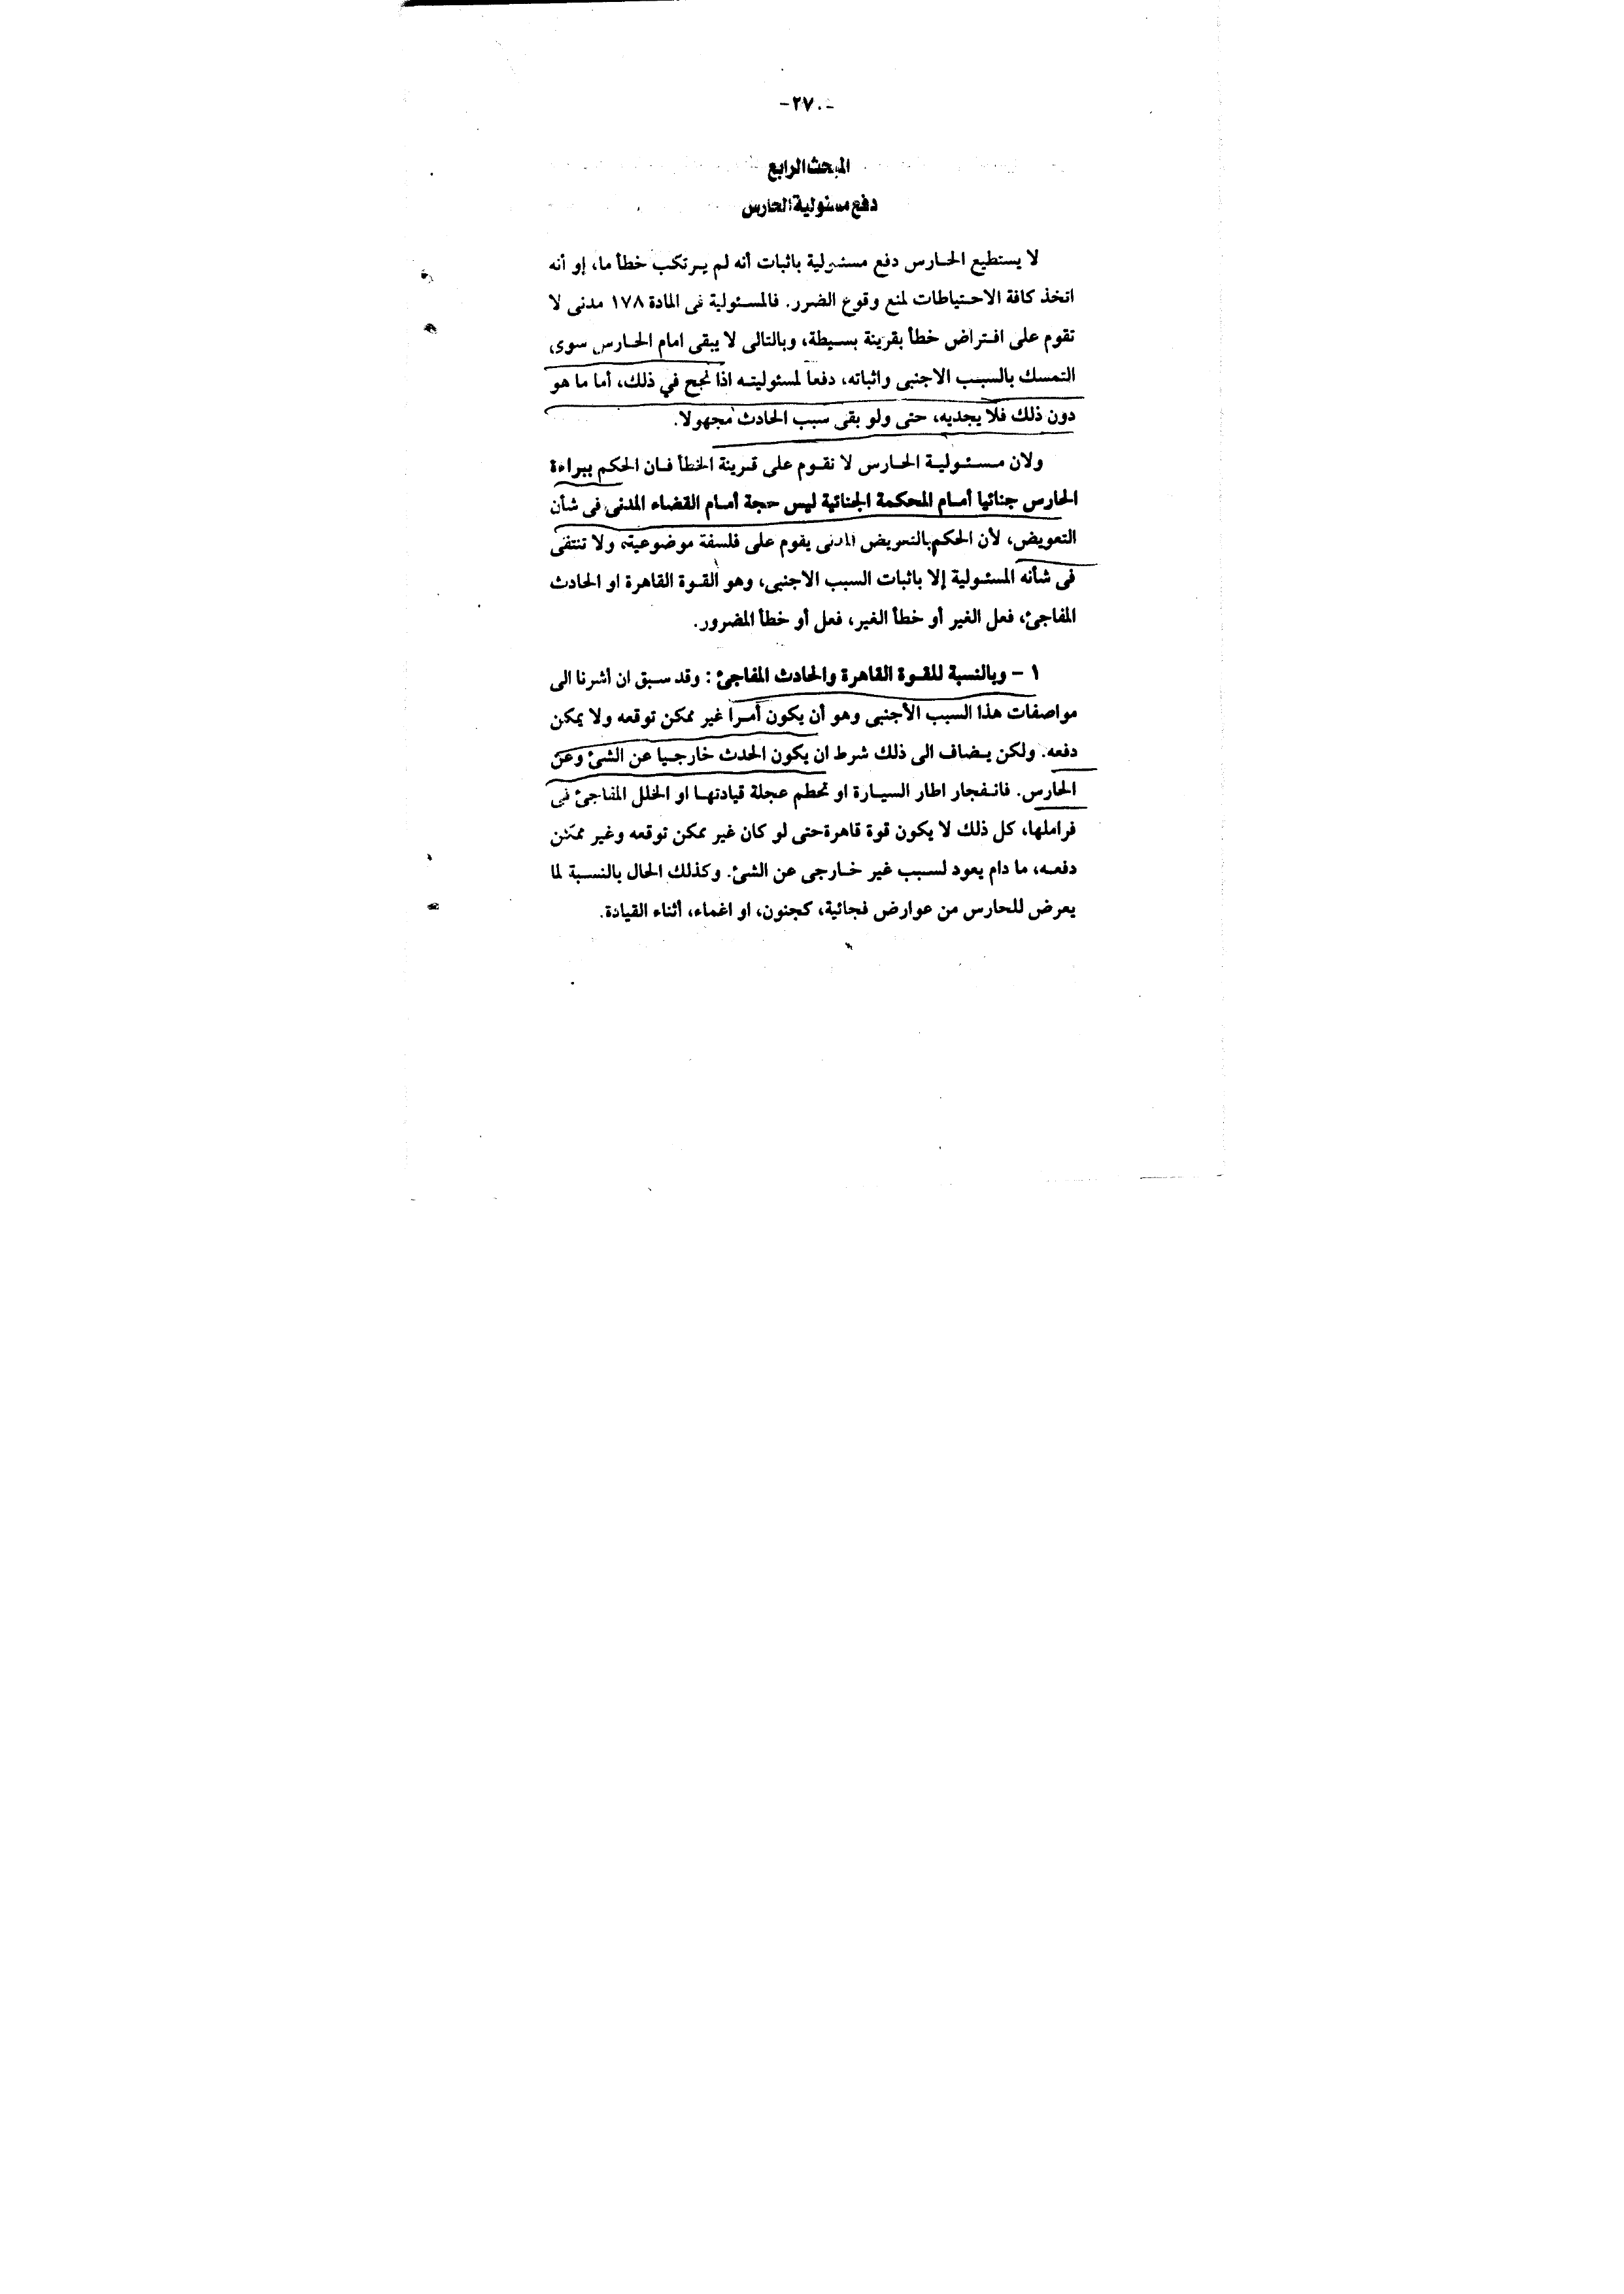 -٢٧٠-
المبحث الرابع
دفع مسئولية الحارس
لا يستطيع الحارس دفع مسئولية باثبات أنه لم يرتكب خطأ ما، إو أنه
اتخذ كافة الاحتياطات لمنع وقوع الضرر. فالمسئولية فى المادة ١٧٨ مدنى لا
تقوم على افتراض خطأ بقرينة بسيطة، وبالتالى لا يبقى امام الحارس سوى
التمسك بالسبب الاجنبى واثباته، دفعا لمسئوليته اذا نجح في ذلك، أما ما هو
دون ذلك فلا يجديه، حتى ولو بقى سبب الحادث مجهولا.
ولان مسئولية الحارس لا تقوم على قرينة الخطأ فان الحكم ببراءة
الحارس جنائيا أمام المحكمة الجنائية ليس حجة أمام القضاء المدنى فى شأن
التعويض، لأن الحكم بالتعويض المدنى يقوم على فلسفة موضوعية، ولا تنتفى
فى شأنه المسئولية إلا باثبات السبب الاجنبى، وهو القوة القاهرة او الحادث
المفاجئ، فعل الغير أو خطأ الغير، فعل أو خطأ المضرور.
١ - وبالنسبة للقوة القاهرة والحادث المفاجئ : وقد سبق ان أشرنا الى
مواصفات هذا السبب الأجنبى وهو أن يكون أمرا غير ممكن توقعه ولا يمكن
دفعه. ولكن يضاف الى ذلك شرط ان يكون الحدث خارجيا عن الشئ وعن
الحارس. فانفجار اطار السيارة او تحطم عجلة قيادتها او الخلل المفاجئ فى
فراملها، كل ذلك لا يكون قوة قاهرة حتى لو كان غير ممكن توقعه وغير ممكن
دفعه، ما دام يعود لسبب غير خارجى عن الشئ. وكذلك الحال بالنسبة لما
يعرض للحارس من عوارض فجائية، كجنون، او اغماء، أثناء القيادة.